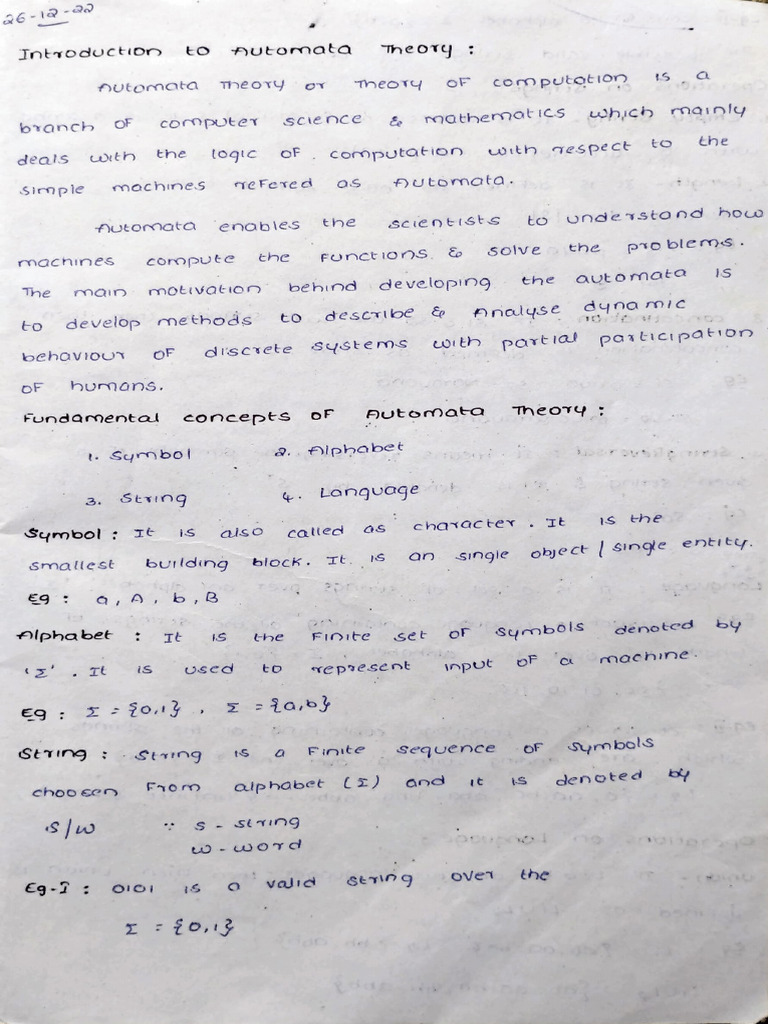 26-12-22
Introduction to Automata Theory :
Automata Theory or Theory of computation is a
branch of computer science & mathematics which mainly
deals with the logic of computation with respect to the
simple machines refered as Automata.
Automata enables the scientists to understand how
machines compute the functions & solve the problems.
The main motivation behind developing the automata is
to develop methods to describe & Analyse dynamic
behaviour of discrete systems with partial participation
of humans.
Fundamental concepts of Automata Theory :
1. Symbol 2. Alphabet
3. String 4. Language
Symbol : It is also called as character. It is the
smallest building block. It is an single object / single entity.
Eg : a, A, b, B
Alphabet : It is the Finite set of symbols denoted by
'Σ'. It is used to represent input of a machine.
Eg : Σ = {0,1} , Σ = {a,b}
String : String is a Finite sequence of symbols
choosen From alphabet (Σ) and it is denoted by
S/W ∵ S - string
w - word
Eg-I : 0101 is a valid string over the
Σ = {0,1}